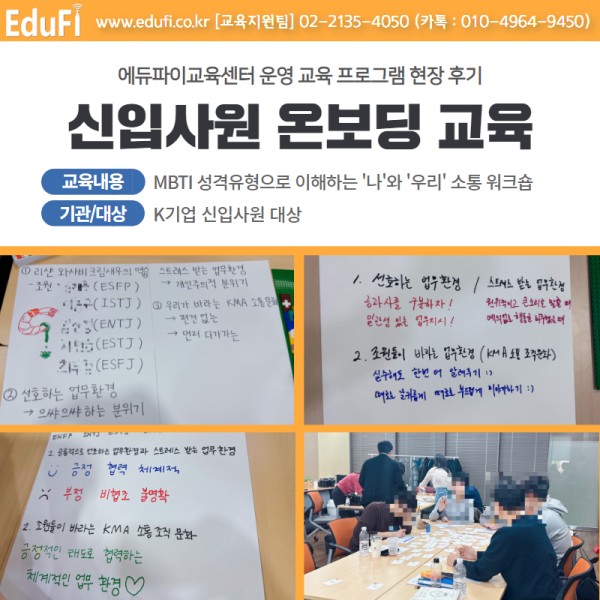 EduFi www.edufi.co.kr [교육지원팀] 02-2135-4050 (카톡 : 010-4964-9450)
에듀파이교육센터 운영 교육 프로그램 현장 후기
신입사원 온보딩 교육
교육내용 MBTI 성격유형으로 이해하는 '나'와 '우리' 소통 워크숍
기관/대상 K기업 신입사원 대상
① 리샨 와사비크림새우의 맵
조원
(ESFP)
(ISTJ)
(ENTJ)
(ESTJ)
(ESFJ)
② 선호하는 업무환경
→ 으쌰으쌰 하는 분위기
스트레스 받는 업무환경
→ 개인주의적 분위기
③ 우리가 바라는 KMA 소통문화
→ 편견 없는
→ 먼저 다가가는
1. 선호하는 업무환경 / 스트레스 받는 업무환경
공과 사를 구분하자!
일관성 있는 업무지시!
2. 조원들이 바라는 업무환경 (KMA 소통 조직문화)
실수해도 한번 더 알려주기 :)
때로는 부드럽게 이야기하기 :)
ENFP
1. 공통적으로 선호하는 업무환경과 스트레스 받는 업무환경
긍정 협력 체계적
부정 비협조 불명확
2. 조원들이 바라는 KMA 소통 조직 문화
긍정적인 태도로 협력하는
체계적인 업무 환경♡